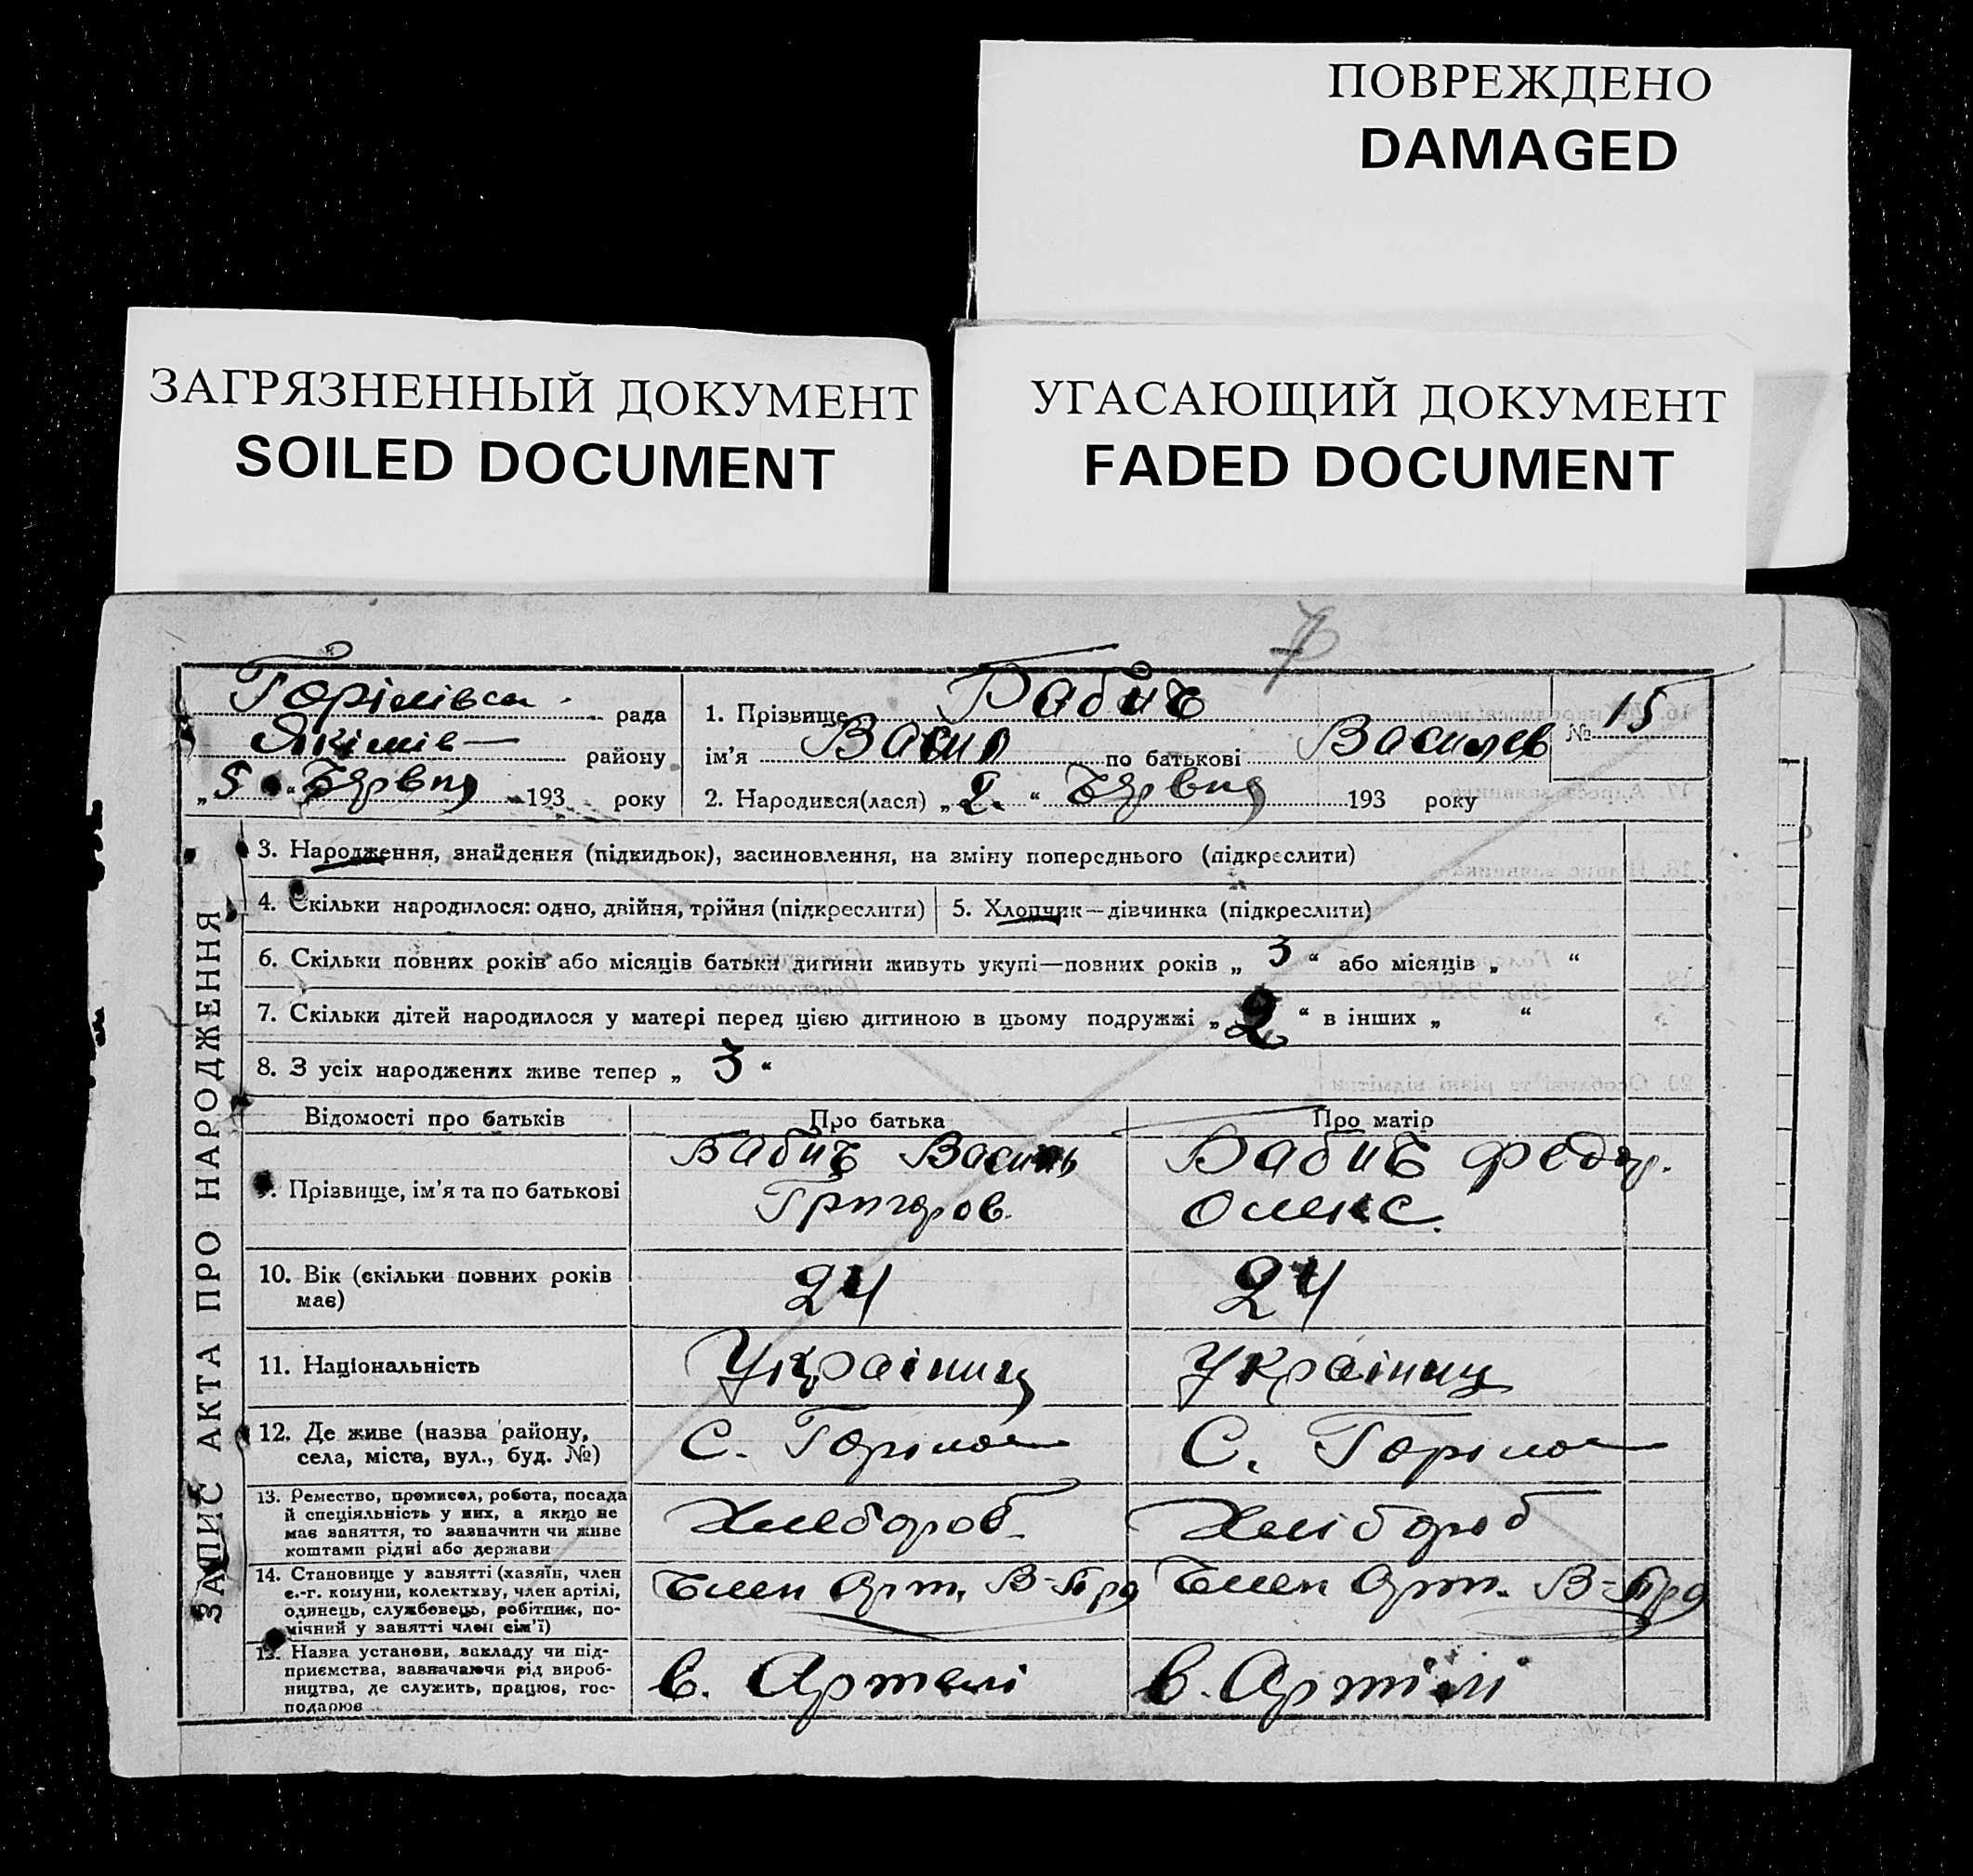 ПОВРЕЖДЕНО
DAMAGED
ЗАГРЯЗНЕННЫЙ ДОКУМЕНТ
SOILED DOCUMENT
УГАСАЮЩИЙ ДОКУМЕНТ
FADED DOCUMENT
рада
району
„5“ Червня 193 року
1. Прізвище Бабич
ім’я Васил по батькові Василев
№ 15
2. Народився(лася) „2.“ Червня 193 року
ЗАПИС АКТА ПРО НАРОДЖЕННЯ
3. Народження, знайдення (підкидьок), засиновлення, на зміну попереднього (підкреслити)
4. Скільки народилося: одно, двійня, трійня (підкреслити)
5. Хлопчик—дівчинка (підкреслити)
6. Скільки повних років або місяців батьки дитини живуть укупі—повних років „ 3 “ або місяців „ “
7. Скільки дітей народилося у матері перед цією дитиною в цьому подружжі „ 2 “ в інших „ “
8. З усіх народжених живе тепер „ 3 “
Відомості про батьків
Про батька
Про матір
9. Прізвище, ім’я та по батькові
Бабич Василь
Григоров.
Бабич Федор.
Олекс.
10. Вік (скільки повних років
має)
24
24
11. Національність
Українц
Українц
12. Де живе (назва району,
села, міста, вул., буд. №)
С.
С.
13. Ремество, промисел, робота, посада
й спеціяльність у них, а якщо не
має заняття, то зазначити чи живе
коштами рідні або держави
Хлебороб
Хлібороб
14. Становище у занятті (хазяїн, член
с.-г. комуни, колективу, член артілі,
одинець, службовець, робітник, по-
мічний у занятті член сім’ї)
Член Арт.
Член Арт.
15. Назва установи, закладу чи під-
приємства, зазначаючи рід вироб-
ництва, де служить, працює, гос-
подарює
в. Артелі
в. Артілі